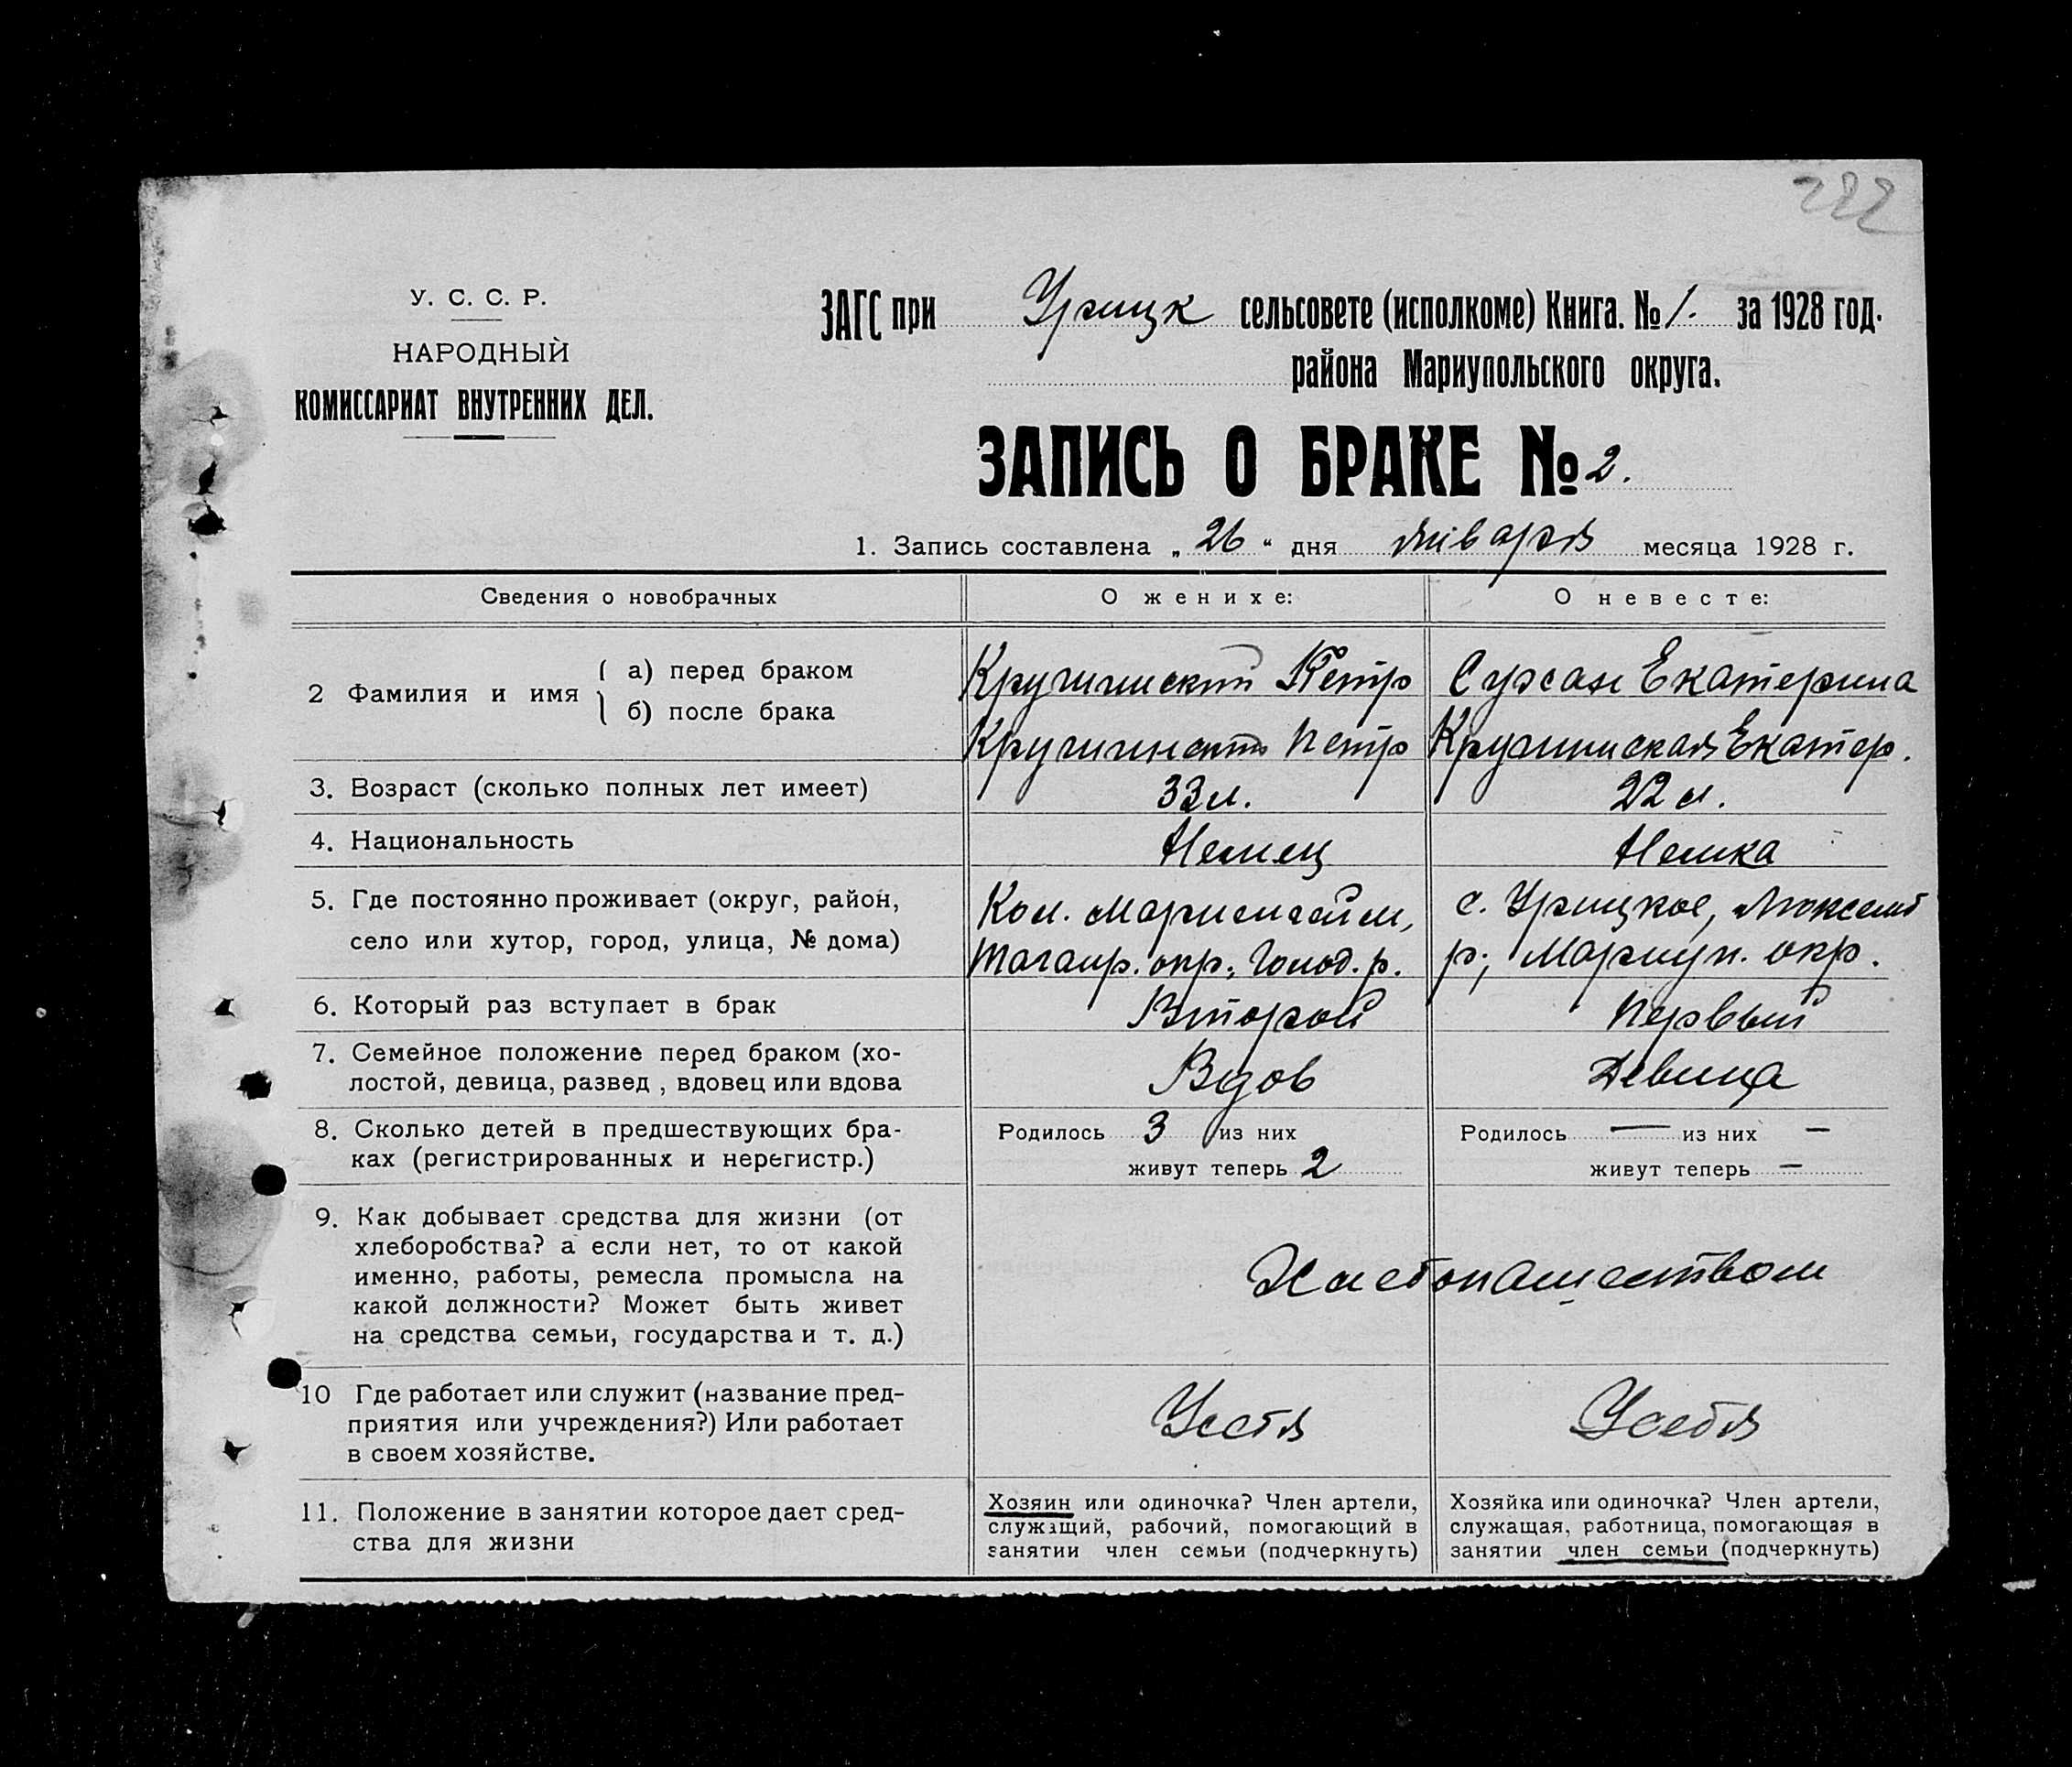 222
У. С. С. Р.
НАРОДНЫЙ
КОМИССАРИАТ ВНУТРЕННИХ ДЕЛ.
ЗАГС при Урицк сельсовете (исполкоме) Книга. № 1. за 1928 год.
района Мариупольского округа.
ЗАПИСЬ О БРАКЕ № 2.
1. Запись составлена „ 26 “ дня января месяца 1928 г.
Сведения о новобрачных О женихе: О невесте:
2 Фамилия и имя
а) перед браком Кручинский Петр Екатерина
б) после брака Кручинский Петр Кручинская Екатер.
3. Возраст (сколько полных лет имеет) 33 л. 22 л.
4. Национальность Немец Немка
5. Где постоянно проживает (округ, район, Кол. Мариенгейм, с. Урицкое, Люксемб
село или хутор, город, улица, № дома) Таганр. окр., р. р., Мариуп. окр.
6. Который раз вступает в брак Второй Первый
7. Семейное положение перед браком (хо-
лостой, девица, развед , вдовец или вдова Вдов Девица
8. Сколько детей в предшествующих бра- Родилось 3 из них Родилось — из них —
ках (регистрированных и нерегистр.) живут теперь 2 живут теперь —
9. Как добывает средства для жизни (от
хлеборобства? а если нет, то от какой
именно, работы, ремесла промысла на Хлебопашеством
какой должности? Может быть живет
на средства семьи, государства и т. д.)
10 Где работает или служит (название пред-
приятия или учреждения?) Или работает У себя У себя
в своем хозяйстве.
11. Положение в занятии которое дает сред-
ства для жизни
Хозяин или одиночка? Член артели,
служащий, рабочий, помогающий в
занятии член семьи (подчеркнуть)
Хозяйка или одиночка? Член артели,
служащая, работница, помогающая в
занятии член семьи (подчеркнуть)